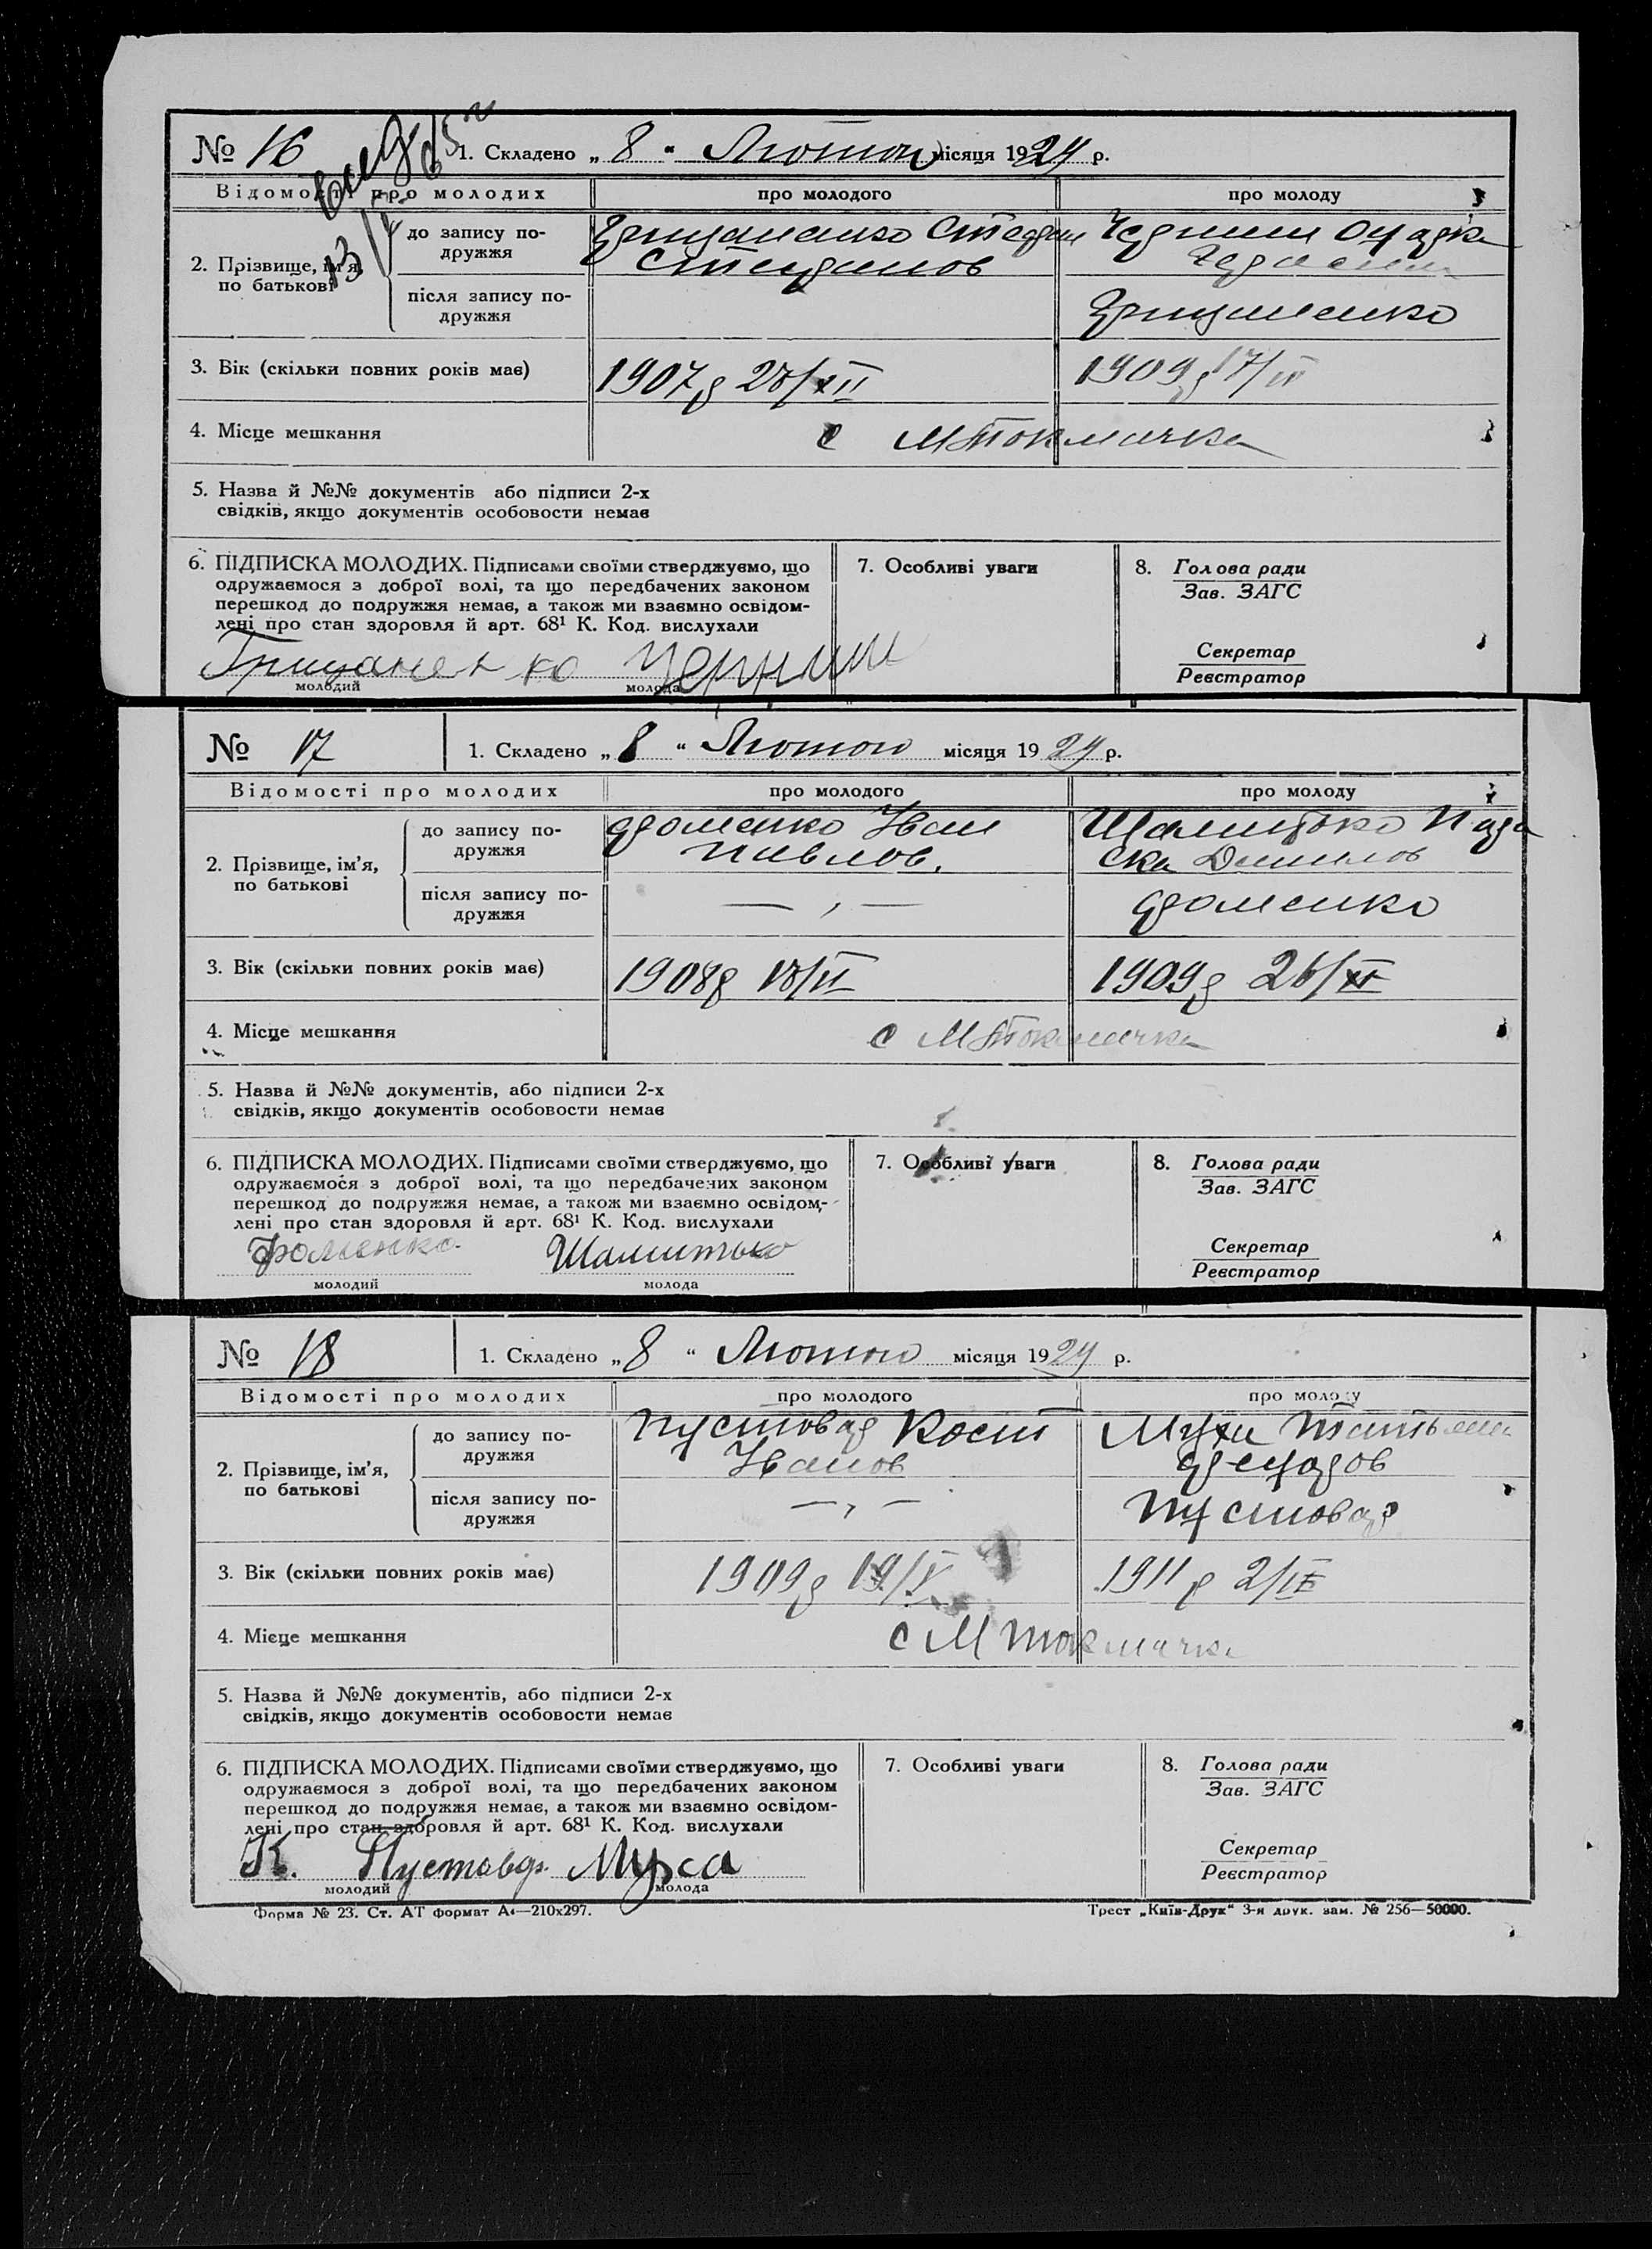 № 16
1. Складено „ 8 “ Лютого місяця 1929 р.
Відомості про молодих
про молодого
про молоду
2. Прізвище, ім'я, по батькові
до запису подружжя
Грицаненко Стефан
Степанов
Черниш
після запису подружжя
3. Вік (скільки повних років має)
1907 р 28/XII
1909 р 17/IV
4. Місце мешкання
с МТокмачка
5. Назва й №№ документів або підписи 2-х
свідків, якщо документів особовости немає
6. ПІДПИСКА МОЛОДИХ. Підписами своїми стверджуємо, що
одружаємося з доброї волі, та що передбачених законом
перешкод до подружжя немає, а також ми взаємно освідом-
лені про стан здоровля й арт. 68¹ К. Код. вислухали
Грицаненко Черниш
молодий молода
7. Особливі уваги
8. Голова ради
Зав. ЗАГС
Секретар
Реєстратор
№ 17
1. Складено „ 8 “ Лютого місяця 1929 р.
Відомості про молодих
про молодого
про молоду
2. Прізвище, ім'я,
по батькові
до запису по-
дружжя
Фоменко Іван
Павлов.
Шамитько
Данилов
після запису по-
дружжя
— „ —
Фоменко
3. Вік (скільки повних років має)
1908 р 18/II
1909 р 26/XI
4. Місце мешкання
с МТокмачка
5. Назва й №№ документів, або підписи 2-х
свідків, якщо документів особовости немає
6. ПІДПИСКА МОЛОДИХ. Підписами своїми стверджуємо, що
одружаємося з доброї волі, та що передбачених законом
перешкод до подружжя немає, а також ми взаємно освідом-
лені про стан здоровля й арт. 68¹ К. Код. вислухали
Фоменко Шамитько
молодий молода
7. Особливі уваги
8. Голова ради
Зав. ЗАГС
Секретар
Реєстратор
№ 18
1. Складено „ 8 “ Лютого місяця 1929 р.
Відомості про молодих
про молодого
про молоду
2. Прізвище, ім'я,
по батькові
до запису по-
дружжя
Пустовар Кост
Іванов
Муха Татьяна
Федоров
після запису по-
дружжя
— „ —
Пустовар
3. Вік (скільки повних років має)
1909 р 19/V
1911 р 2/IX
4. Місце мешкання
с МТокмачка
5. Назва й №№ документів, або підписи 2-х
свідків, якщо документів особовости немає
6. ПІДПИСКА МОЛОДИХ. Підписами своїми стверджуємо, що
одружаємося з доброї волі, та що передбачених законом
перешкод до подружжя немає, а також ми взаємно освідом-
лені про стан здоровля й арт. 68¹ К. Код. вислухали
К. Пустовар Муха
молодий молода
7. Особливі уваги
8. Голова ради
Зав. ЗАГС
Секретар
Реєстратор
Форма № 23. Ст. АТ формат А4—210х297.
Трест „Київ-Друк“ 3-я друк. зам. № 256—50000.